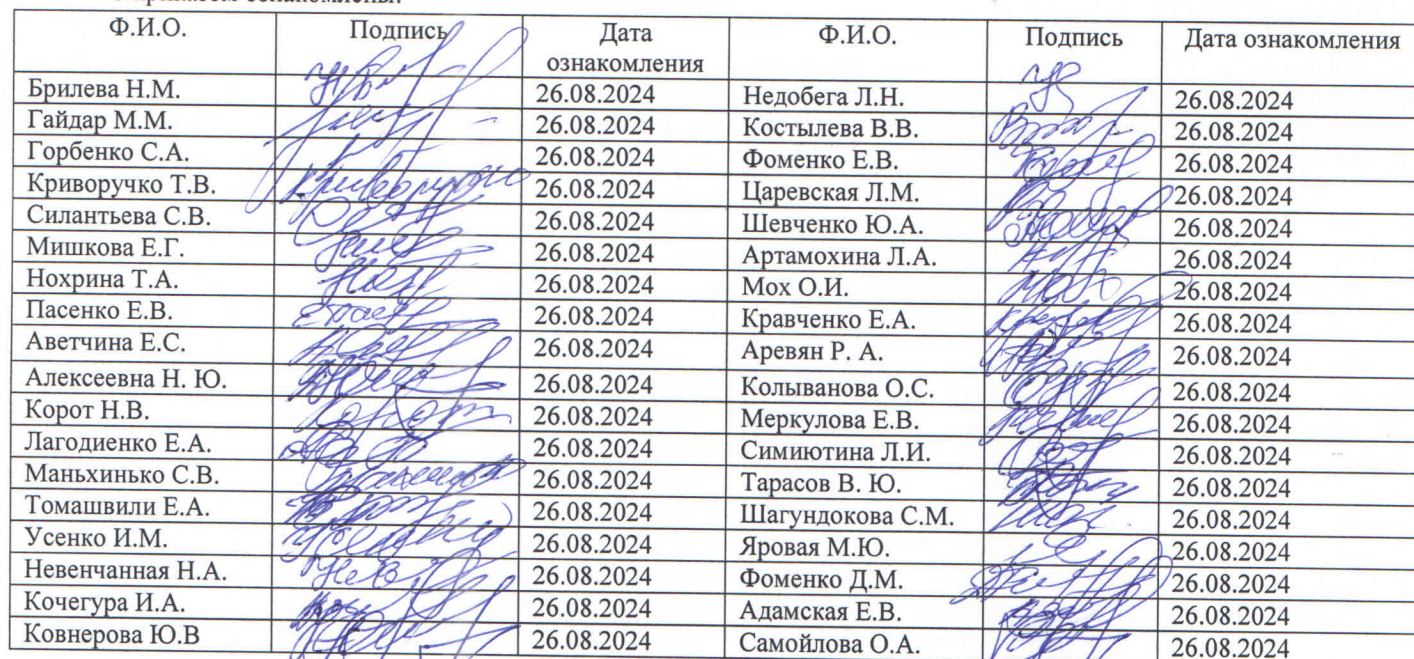 ознакомлены.
Ф.И.О. Подпись Дата ознакомления Ф.И.О. Подпись Дата ознакомления
Брилева Н.М. 26.08.2024 Недобега Л.Н. 26.08.2024
Гайдар М.М. 26.08.2024 Костылева В.В. 26.08.2024
Горбенко С.А. 26.08.2024 Фоменко Е.В. 26.08.2024
Криворучко Т.В. 26.08.2024 Царевская Л.М. 26.08.2024
Силантьева С.В. 26.08.2024 Шевченко Ю.А. 26.08.2024
Мишкова Е.Г. 26.08.2024 Артамохина Л.А. 26.08.2024
Нохрина Т.А. 26.08.2024 Мох О.И. 26.08.2024
Пасенко Е.В. 26.08.2024 Кравченко Е.А. 26.08.2024
Аветчина Е.С. 26.08.2024 Аревян Р. А. 26.08.2024
Алексеевна Н. Ю. 26.08.2024 Колыванова О.С. 26.08.2024
Корот Н.В. 26.08.2024 Меркулова Е.В. 26.08.2024
Лагодиенко Е.А. 26.08.2024 Симиютина Л.И. 26.08.2024
Маньхинько С.В. 26.08.2024 Тарасов В. Ю. 26.08.2024
Томашвили Е.А. 26.08.2024 Шагундокова С.М. 26.08.2024
Усенко И.М. 26.08.2024 Яровая М.Ю. 26.08.2024
Невенчанная Н.А. 26.08.2024 Фоменко Д.М. 26.08.2024
Кочегура И.А. 26.08.2024 Адамская Е.В. 26.08.2024
Ковнерова Ю.В 26.08.2024 Самойлова О.А. 26.08.2024